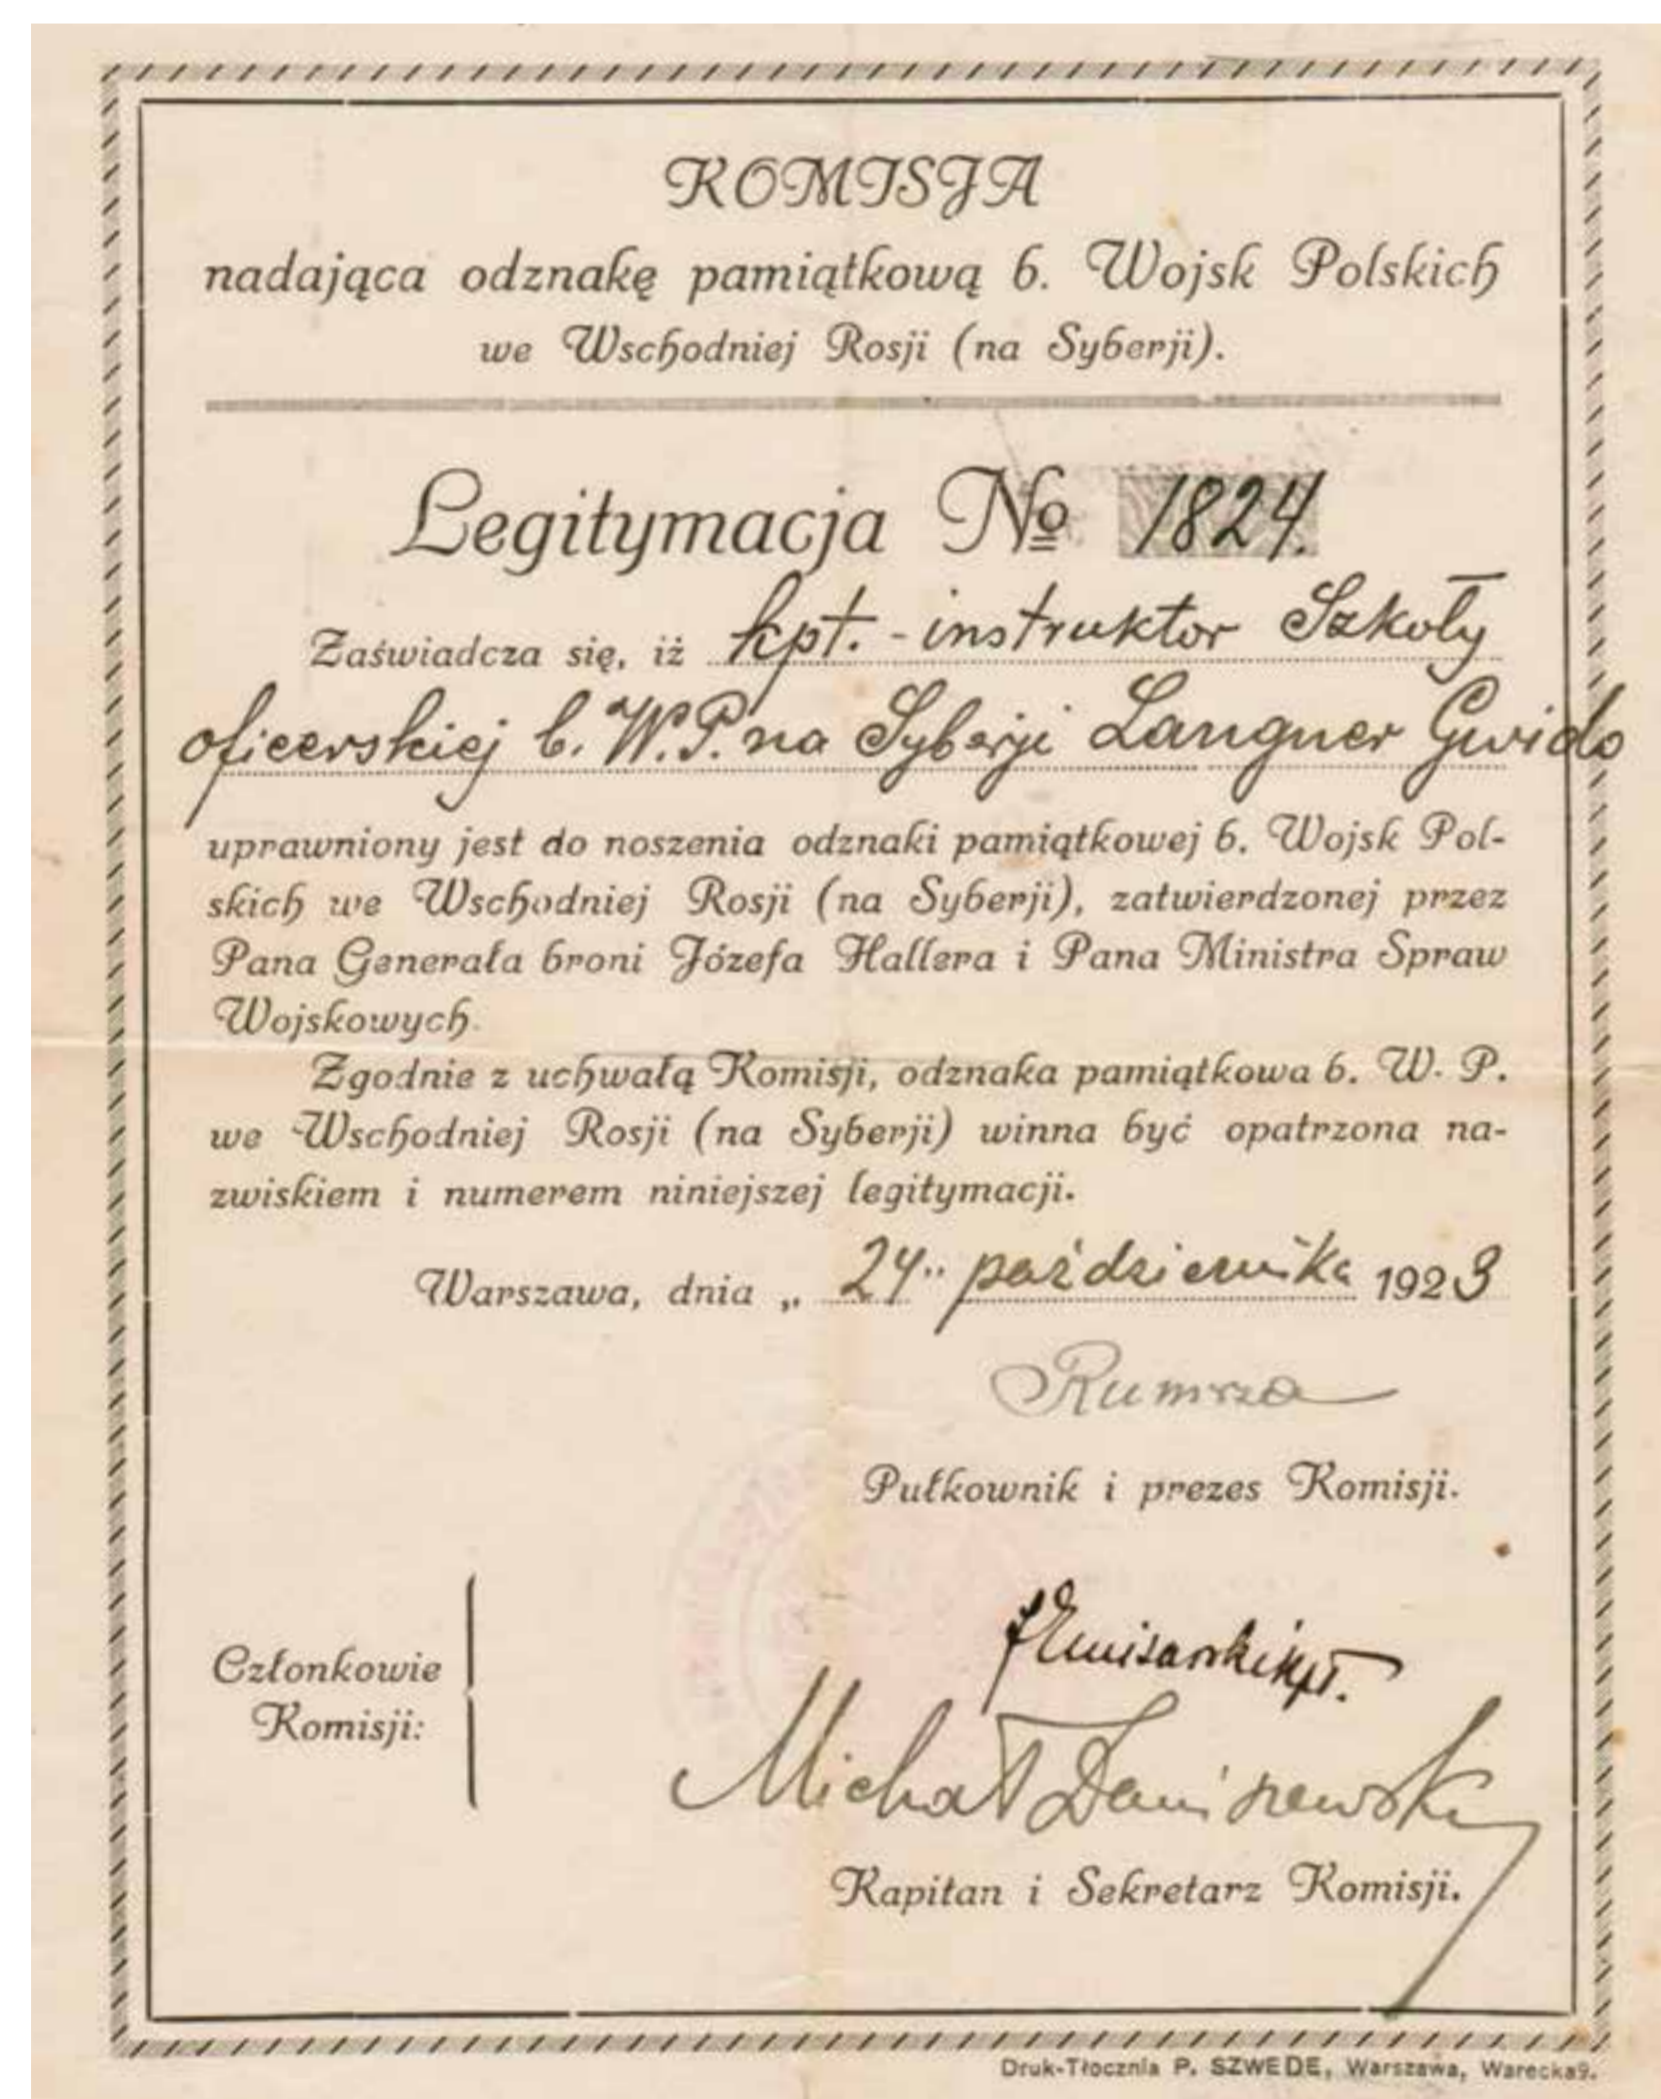 KOMISJA
nadająca odznakę pamiątkową b. Wojsk Polskich
we Wschodniej Rosji (na Syberji).
Legitymacja № 1824.
Zaświadcza się, iż kpt. - instruktor Szkoły
oficerskiej b. W.P. na Syberji Langner Gwido
uprawniony jest do noszenia odznaki pamiątkowej b. Wojsk Pol-
skich we Wschodniej Rosji (na Syberji), zatwierdzonej przez
Pana Generała broni Józefa Hallera i Pana Ministra Spraw
Wojskowych.
Zgodnie z uchwałą Komisji, odznaka pamiątkowa b. W. P.
we Wschodniej Rosji (na Syberji) winna być opatrzona na-
zwiskiem i numerem niniejszej legitymacji.
Warszawa, dnia „ 24" października 1923
Rumsza
Pułkownik i prezes Komisji.
Członkowie
Komisji:
kpt.
Michał Daniszewski
Kapitan i Sekretarz Komisji.
Druk-Tłocznia P. SZWEDE, Warszawa, Warecka 9.